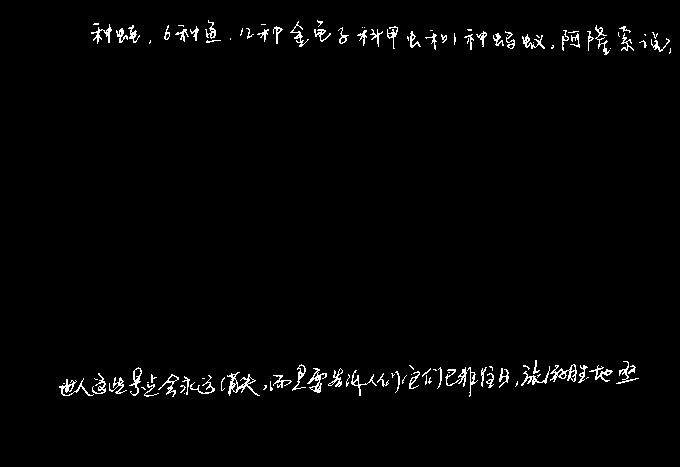 种蛙，6种鱼，12种金龟子科甲虫和1种蚂蚁，阿隆索说，
世人这些景点会永远消失，而是要告诉人们它们已非往日，旅游胜地空